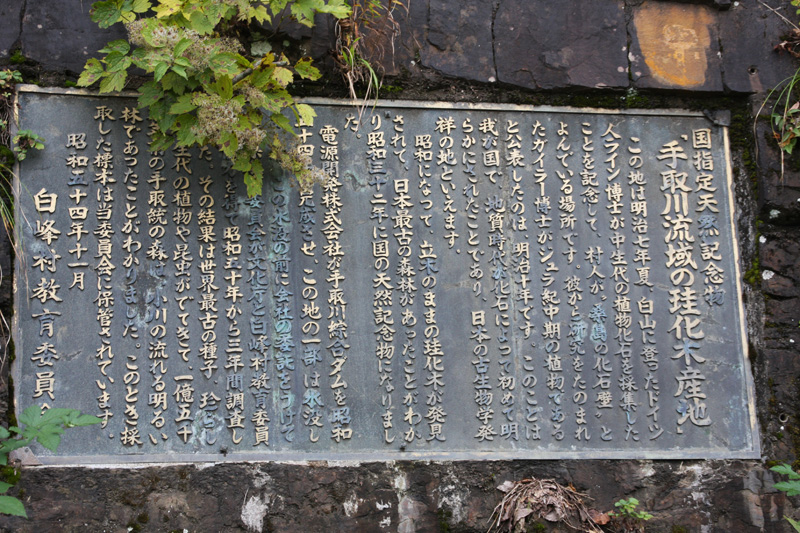 国指定天然記念物
「手取川流域の珪化木産地」
この地は明治七年夏、白山に登ったドイツ
人ライン博士が中生代の植物化石を採集した
ことを記念して、村人が「桑島の化石壁」と
よんでいる場所です。彼から研究をたのまれ
たガイラー博士がジュラ紀中期の植物である
と公表したのは、明治十年です。このことは
我が国で、地質時代が化石によって初めて明
らかにされたことであり、日本の古生物学発
祥の地といえます。
昭和になって、立木のままの珪化木が発見
されて、日本最古の森林があったことがわか
り昭和三十二年に国の天然記念物になりまし
た。
電源開発株式会社が手取川総合ダムを昭和
十四 完成させ、この地の一部は水没し
の水没の前に会社の委託をうけて
委員会が文化庁と白峰村教育委員
を得て昭和五十年から三年間調査し
た。その結果は世界最古の種子、珍らし
代の植物や昆虫がでてきて一億五千
の手取統の森 小川の流れる明るい
林であったことがわかりました。このとき採
取した標本は当委員会に保管されています。
昭和五十四年十一月
白峰村教育委員